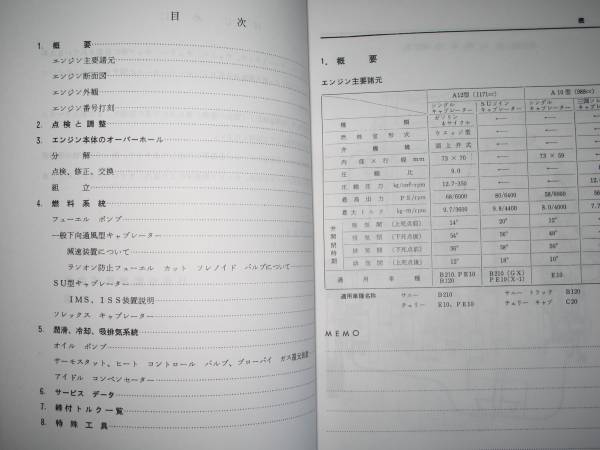 目次
1. 概要
エンジン主要諸元
エンジン断面図
エンジン外観
エンジン番号打刻
2. 点検と調整
3. エンジン本体のオーバーホール
分解
点検、修正、交換
組立
4. 燃料系統
フューエル ポンプ
一般下向通風型キャブレーター
減速装置について
ランオン防止フューエル カット ソレノイド バルブについて
SU型キャブレーター
IMS、ISS装置説明
ソレックス キャブレーター
5. 潤滑、冷却、吸排気系統
オイル ポンプ
サーモスタット、ヒート コントロール バルブ、ブローバイ ガス還元装置
アイドル コンペンセーター
6. サービス データ
7. 締付トルク一覧
8. 特殊工具
概
1. 概要
エンジン主要諸元
A12型 (1171cc) A10型 (988cc)
シングルキャブレーター SUツインキャブレーター シングルキャブレーター
種類 ガソリン4サイクル ← ←
燃焼室形式 ウエッジ型 ← ←
弁機構 頭上弁式 ← ←
内径×行程 mm 73×70 ← 73×59
圧縮比 9.0 ← ←
圧縮圧力 kg/cm²-rpm 12.7-350 ← ←
最高出力 PS/rpm 68/6000 80/6400 58/6000
最大トルク kg-m/rpm 9.7/3600 9.8/4400 8.0/4000
弁開閉時期
吸気開 (上死点前) 14° 20° 12°
吸気閉 (下死点後) 54° 56° 48°
排気開 (下死点前) 56° 58° 50°
排気閉 (上死点後) 12° 18° 10°
適用車種 B210, PE10 B120 B210 (GX) PE10 (X-1) E10
適用車種名称 サニー B210 サニー トラック B120
チェリー E10、PE10 チェリー キャブ C20
MEMO